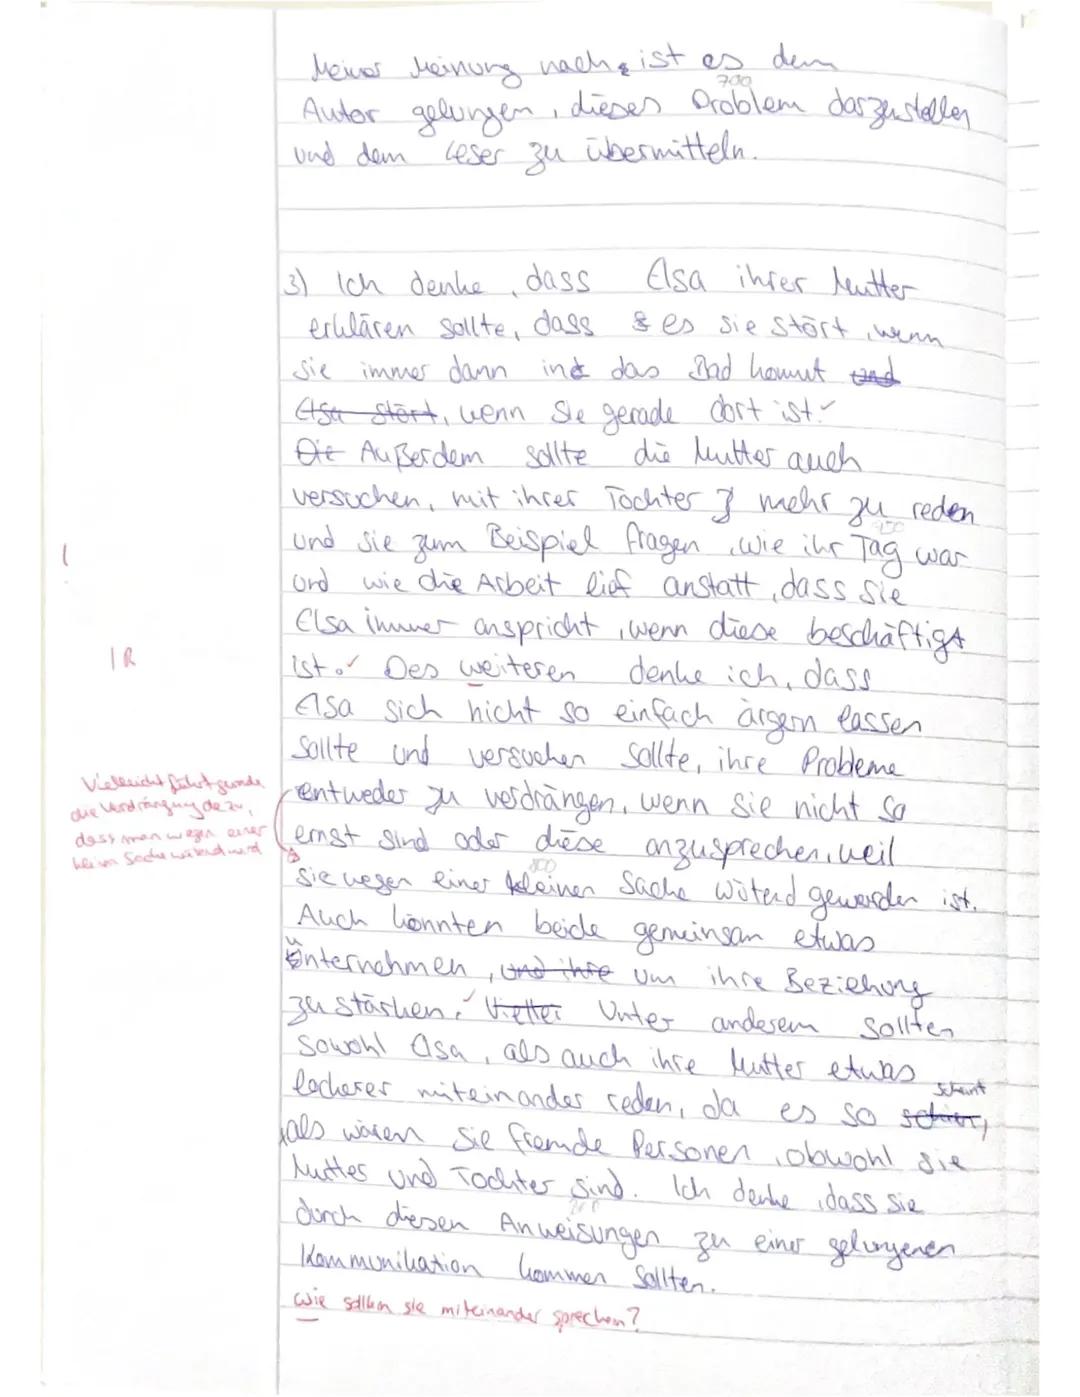 Meiner Meinung nach ist es dem
700
Autor gelungen, dieses Problem darzustellen
und dem Leser zu übermitteln.
3) Ich denke, dass Elsa ihrer Mutter
erklären sollte, dass es sie stört, wenn
sie immer dann in das Bad kommt und
Elsa stört, wenn sie gerade dort ist. ✓
Die Außerdem sollte die Mutter auch
versuchen, mit ihrer Tochter mehr zu reden
750
und sie zum Beispiel fragen, wie ihr Tag war
!
und wie die Arbeit lief anstatt, dass sie
Elsa immer anspricht, wenn diese beschäftigt
I R
ist. ✓ Des weiteren denke ich, dass
Elsa sich nicht so einfach ärgern lassen
sollte und versuchen sollte, ihre Probleme
Vielleicht führt gerade
die Verdrängung dazu,
dass man wegen einer
kleinen Sache wütend wird
entweder zu verdrängen, wenn sie nicht so
ernst sind oder diese anzusprechen, weil
800
sie wegen einer kleinen Sache wütend geworden ist.
Auch könnten beide gemeinsam etwas
unternehmen, und ihre um ihre Beziehung
zu stärken. ✓ Unter anderem sollten
sowohl Elsa, als auch ihre Mutter etwas
lockerer miteinander reden, da es so scheint,
als wären sie fremde Personen, obwohl sie
Mutter und Tochter sind. Ich denke, dass sie
durch diesen Anweisungen zu einer gelungenen
Kommunikation kommen sollten.
Wie sollten sie miteinander sprechen?